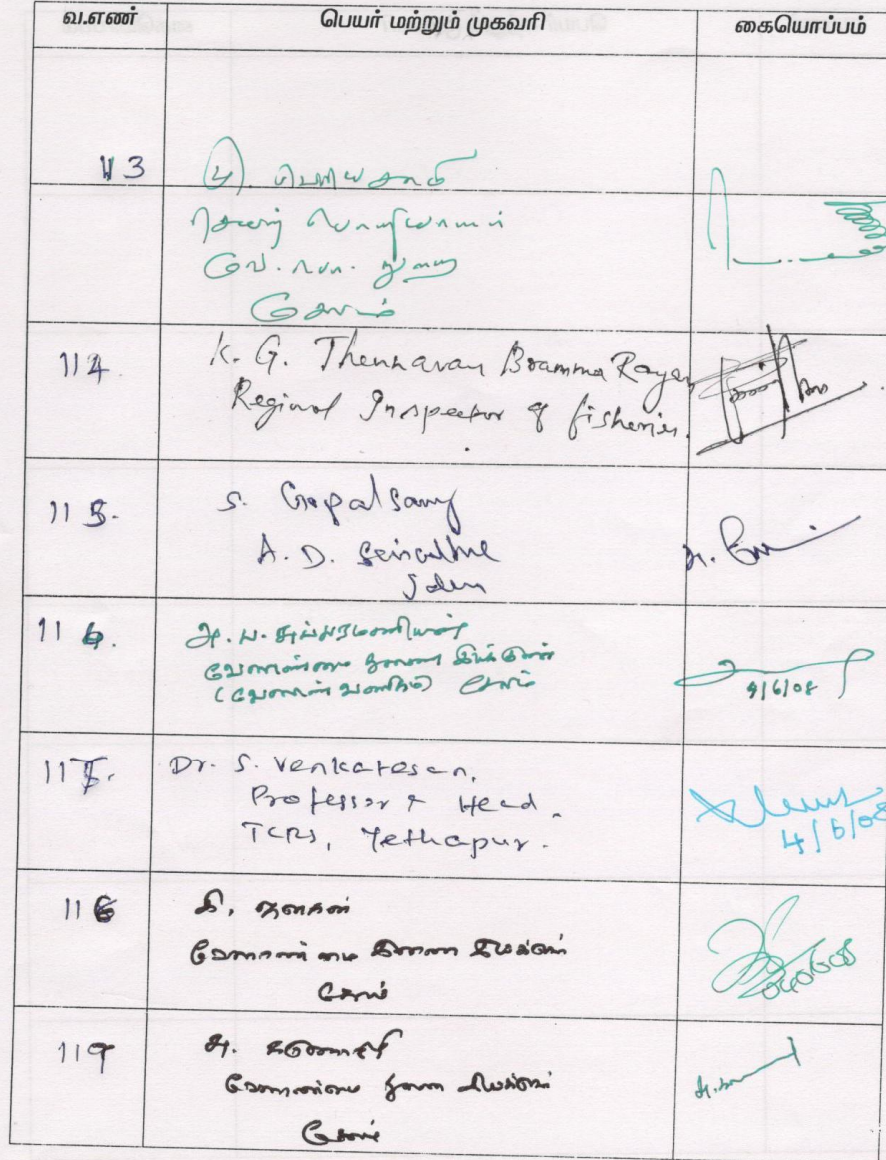 வ.எண் பெயர் மற்றும் முகவரி கையொப்பம்
113
செயற் பொறியாளர்
சேலம்
114 K. G. Thennavan Bramma Rayer
Reginol Inspector of fisheries.
115. S. Gopalsamy
A. D. Sericulture
Salem
116. அ. ப. சுப்பிரமணியன்
வேளாண்மை துணை இயக்குனர்
(வேளாண் வணிகம்) சேலம்
4/6/08
117. Dr. S. Venkatesan,
Professor & Head.
TCRS, Yethapur.
4/6/08
118
வேளாண்மை இணை இயக்குனர்
சேலம்
040608
119 அ. கருணாநிதி
வேளாண்மை துணை இயக்குனர்
சேலம்